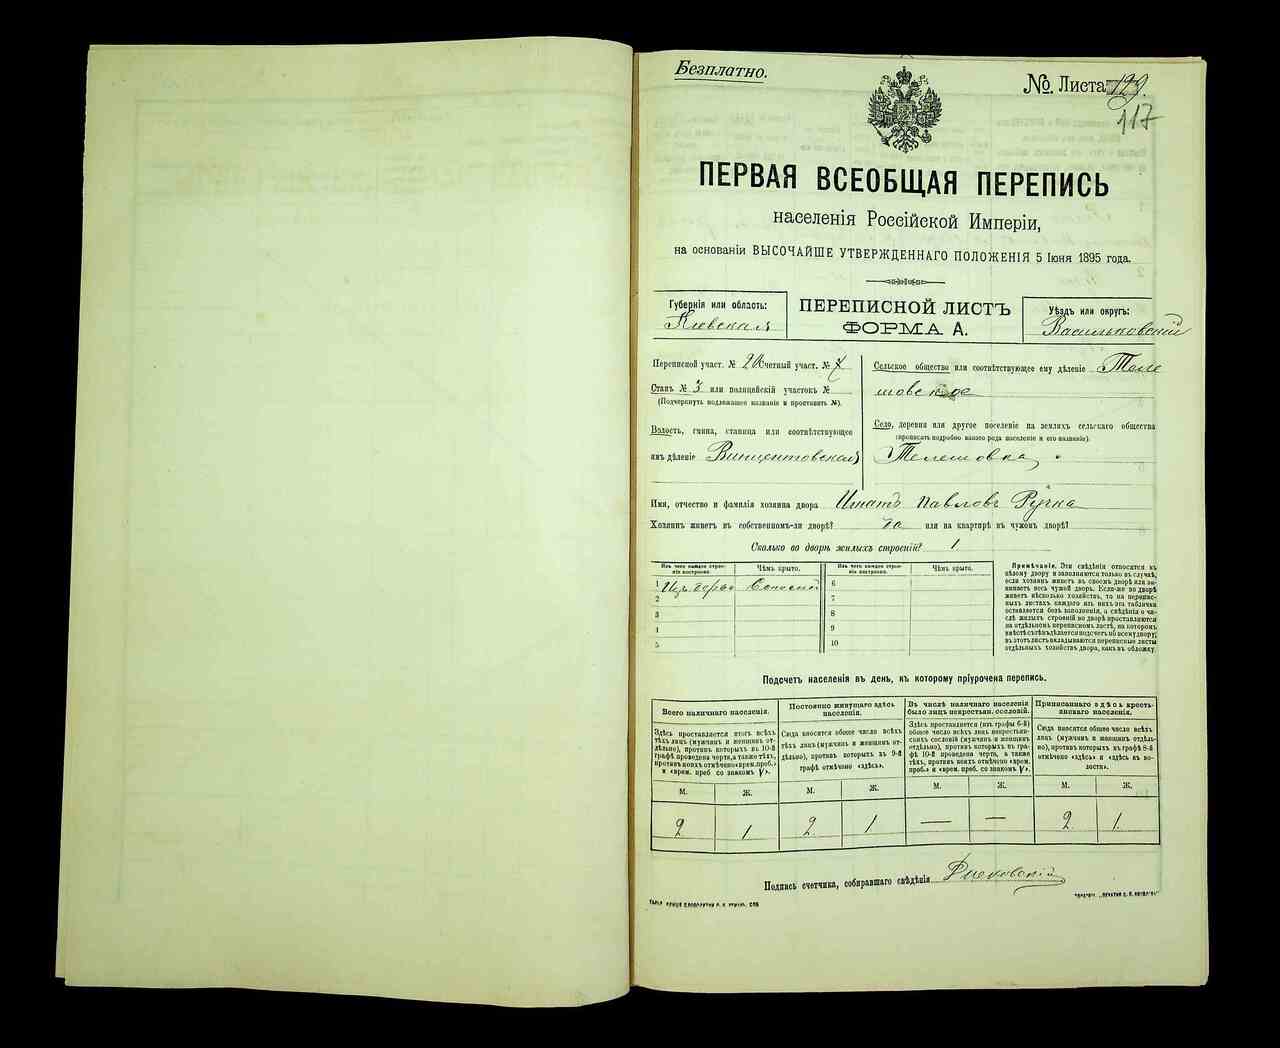 Безплатно.
№. Листа 129.
117
ПЕРВАЯ ВСЕОБЩАЯ ПЕРЕПИСЬ
населенія Россійской Имперіи,
на основаніи ВЫСОЧАЙШЕ УТВЕРЖДЕННАГО ПОЛОЖЕНІЯ 5 Іюня 1895 года.
Губернія или область:
Кіевская
ПЕРЕПИСНОЙ ЛИСТЪ
ФОРМА А.
Уѣздъ или округъ:
Васильковскій
Переписной участ. № 20 Счетный участ. №
Станъ № 3 или полицейскій участокъ №
(Подчеркнуть подлежащее названіе и проставить №).
Волость, гмина, станица или соотвѣтствующее
имъ дѣленіе Винцентовская
Сельское общество или соотвѣтствующее ему дѣленіе Теле
шовское
Село, деревня или другое поселеніе на земляхъ сельскаго общества
(прописать подробно какого рода поселеніе и его названіе).
Телешовка
Имя, отчество и фамилія хозяина двора Игнатъ Павловъ Ручка
Хозяинъ живетъ въ собственномъ-ли дворѣ? да или на квартирѣ въ чужомъ дворѣ?
Сколько во дворѣ жилыхъ строеній? 1
Изъ чего каждое строеніе построено.
Чѣмъ крыто.
Изъ чего каждое строеніе построено.
Чѣмъ крыто.
1 Изъ дерева Соломой
2
3
4
5
6
7
8
9
10
Примѣчаніе. Эти свѣдѣнія относятся къ
цѣлому двору и заполняются только въ случаѣ,
если хозяинъ живетъ въ своемъ дворѣ или занимаетъ
весь чужой дворъ. Если-же во дворѣ
живетъ нѣсколько хозяйствъ, то на переписныхъ
листахъ каждаго изъ нихъ эта табличка
оставляется безъ заполненія, а свѣдѣнія о числѣ
жилыхъ строеній во дворѣ проставляются
на отдѣльномъ переписномъ листѣ, на которомъ
вмѣстѣ съ тѣмъ дѣлается подсчетъ по всему двору;
въ этотъ листъ вкладываются переписные листы
отдѣльныхъ хозяйствъ двора, какъ въ обложку.
Подсчетъ населенія въ день, къ которому пріурочена перепись.
Всего наличнаго населенія.
Здѣсь проставляется итогъ всѣхъ
тѣхъ лицъ (мужчинъ и женщинъ отдѣльно),
противъ которыхъ въ 10-й
графѣ проведена черта, а также тѣхъ,
противъ коихъ отмѣчено «врем. проб.»
и «врем. преб со знакомъ V».
Постоянно живущаго здѣсь
населенія.
Сюда вносится общее число всѣхъ
тѣхъ лицъ (мужчинъ и женщинъ отдѣльно),
противъ которыхъ въ 9-й
графѣ отмѣчено «здѣсь».
Въ числѣ наличнаго населенія
было лицъ некрестьян. сословій.
Здѣсь проставляется (изъ графы 6-й)
общее число всѣхъ лицъ некрестьянскихъ
сословій (мужчинъ и женщинъ
отдѣльно), противъ которыхъ въ графѣ
10-й проведена черта, или отмѣчено «врем.
проб.» и «врем. преб. со знакомъ V».
Приписаннаго здѣсь крестьянскаго
населенія.
Сюда вносится общее число всѣхъ
лицъ (мужчинъ и женщинъ отдѣльно),
противъ которыхъ въ графѣ 8-й
отмѣчено «здѣсь» и «здѣсь въ волости».
М. Ж. М. Ж. М. Ж. М. Ж.
2 1 2 1 — — 2 1.
Подпись счетчика, собиравшаго свѣдѣнія